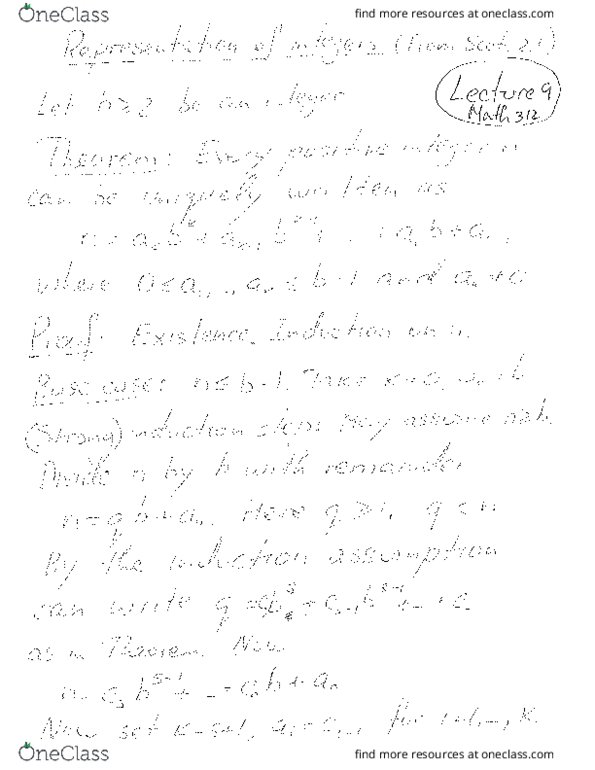 OneClass
find more resources at oneclass.com
Representation of integers (From Sect. 2.1)
Lecture 9
Math 312
Let b ≥ 2 be an integer
Theorem: Every positive integer n
can be uniquely written as
n = a b + a b + a, b + a
where 0 ≤ a b - 1 and a ≠ 0
Proof: Existence. Induction on n.
Base case: n ≤ b-1. Take k = 0,
(Strong) induction step: May assume n ≥ b.
Divide n by b with remainder
n = q b + a. Here q ≥ 1, q < n
By the induction assumption
can write q = c b + c b + ... + c
as in Theorem. Now
n = c b + ... + c b + a
Now set k = s+1, for i=1,..., k.
OneClass
find more resources at oneclass.com